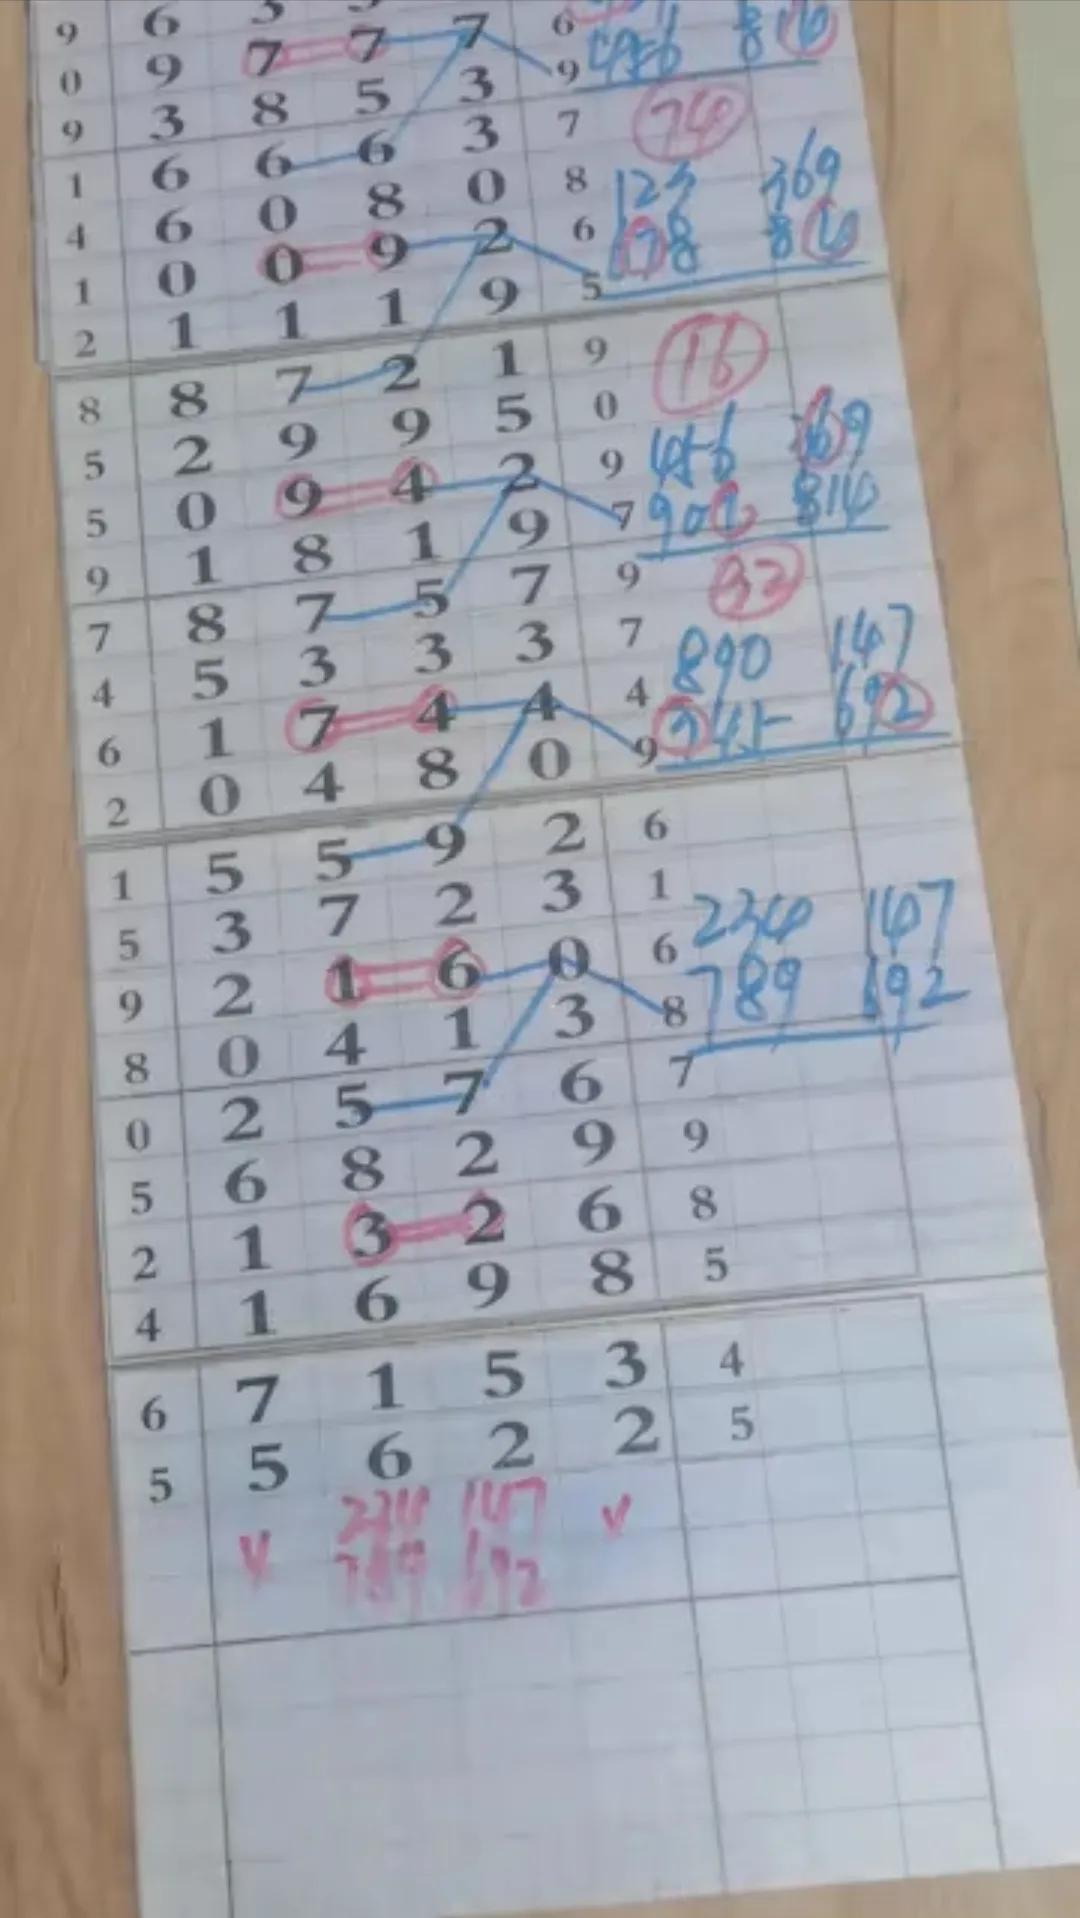 9 6 3
0 9 7 7 7 6 456 814
9 3 8 5 3 9
1 6 6 6 3 7 74
4 6 0 8 0 8 123 369
1 0 0 9 2 6 678 814
2 1 1 1 9 5
8 8 7 2 1 9 16
5 2 9 9 5 0
5 0 9 4 2 9 456 369
9 1 8 1 9 7 901 814
7 8 7 5 7 9 32
4 5 3 3 3 7 890 147
6 1 7 4 4 4 345 692
2 0 4 8 0 9
1 5 5 9 2 6
5 3 7 2 3 1 234 147
9 2 1 6 0 6
8 0 4 1 3 8 789 692
0 2 5 7 6 7
5 6 8 2 9 9
2 1 3 2 6 8
4 1 6 9 8 5
6 7 1 5 3 4
5 5 6 2 2 5
234 147
v 789 692 v